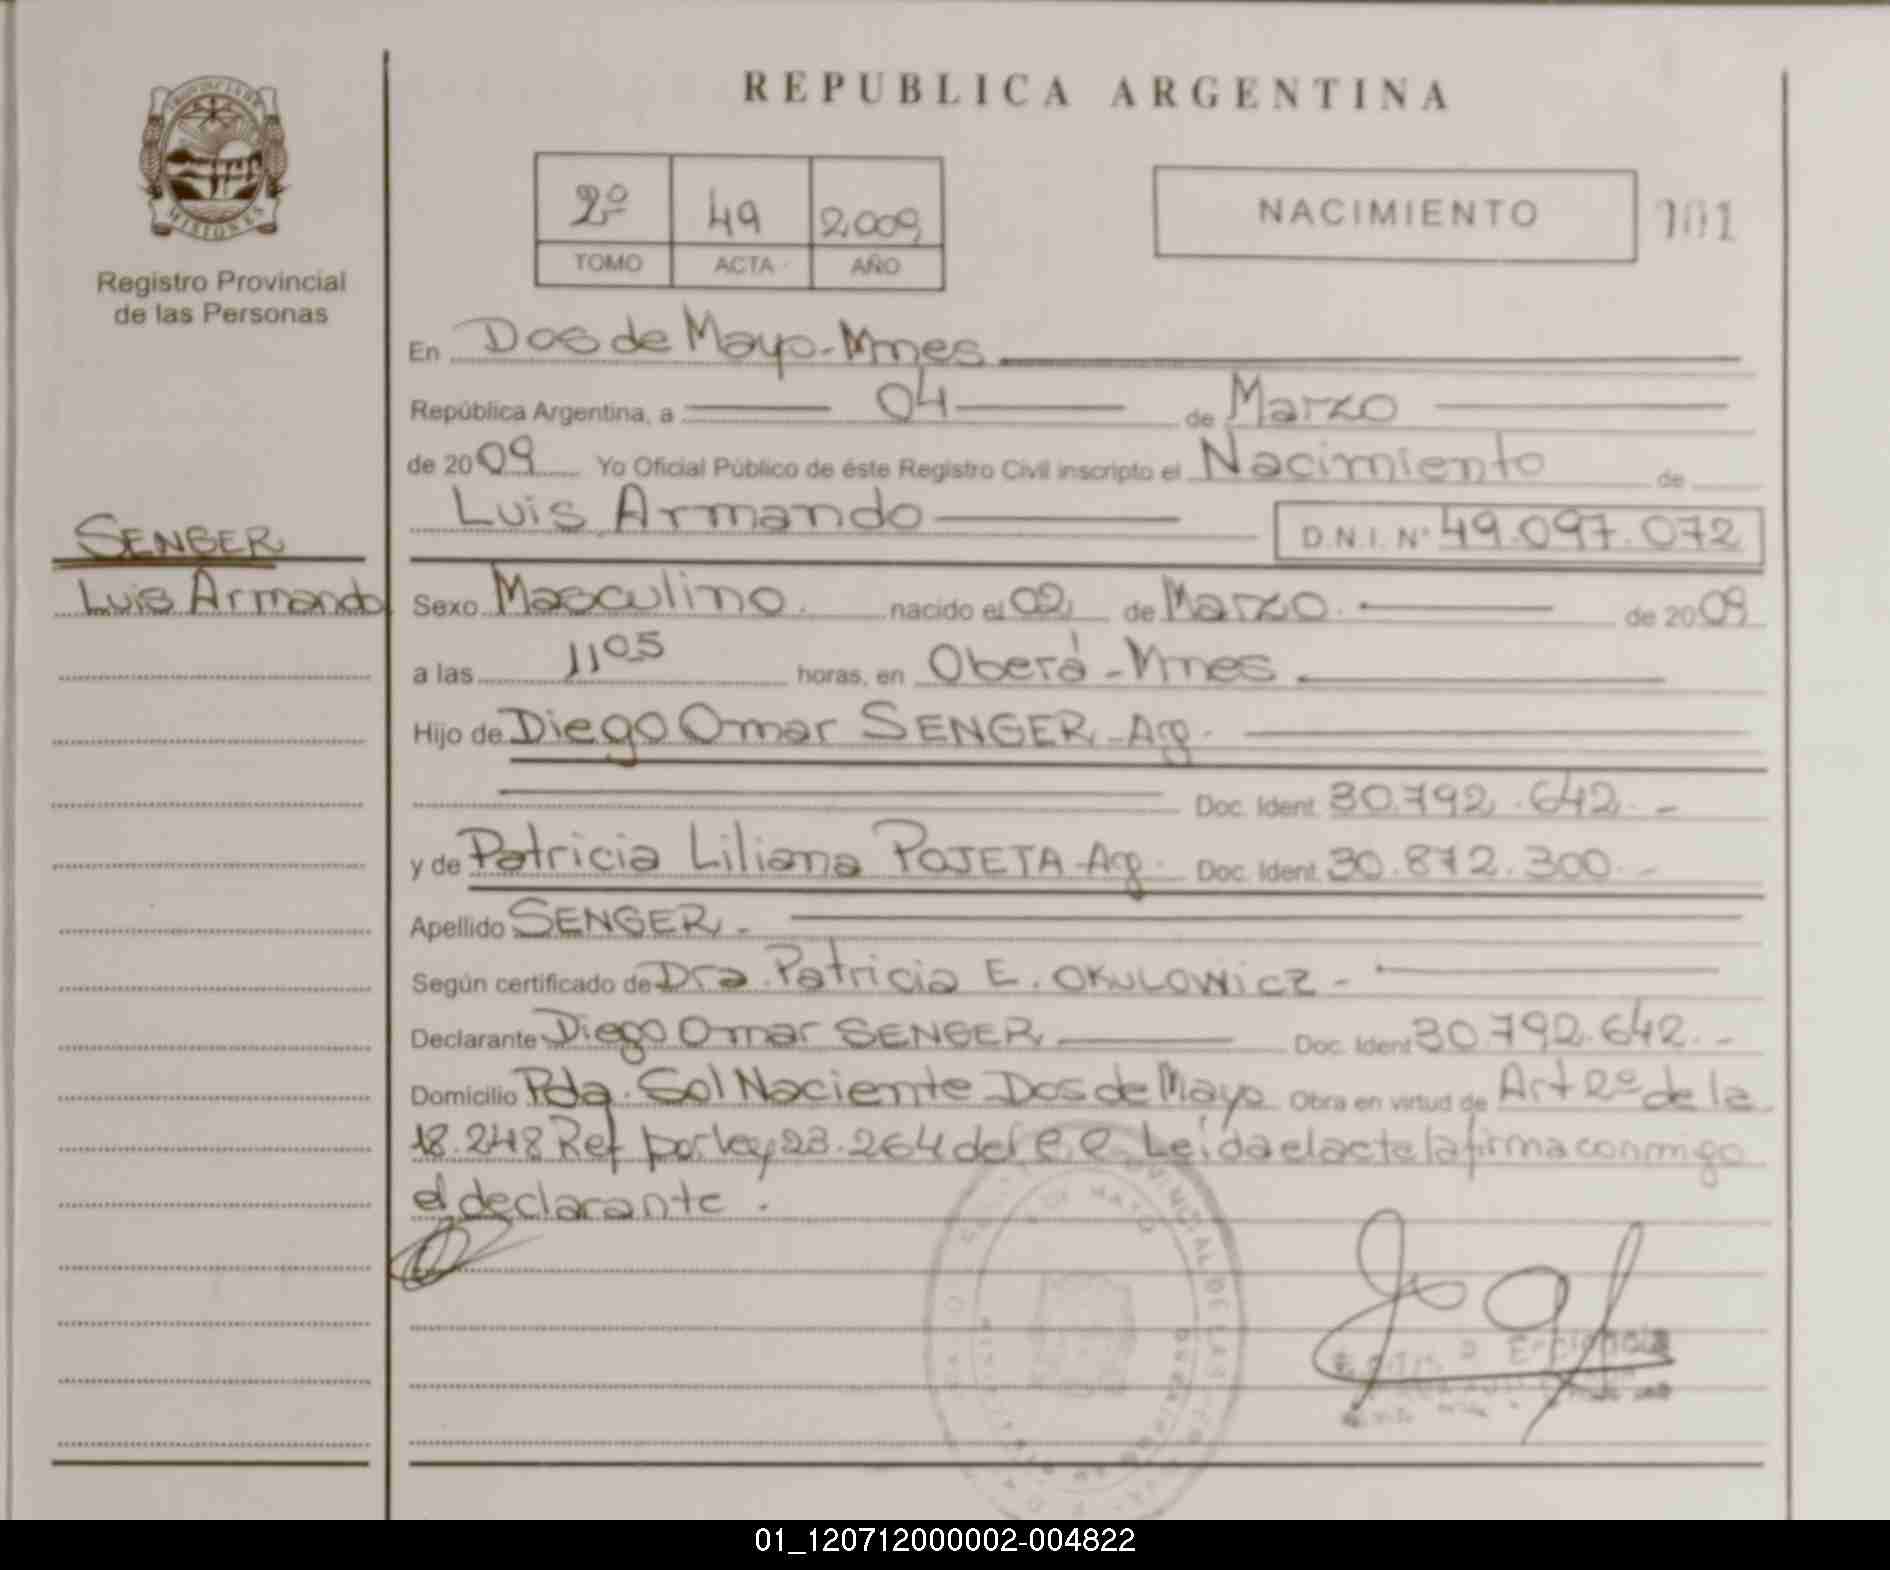 REPUBLICA ARGENTINA
PROVINCIA DE
MISIONES
Registro Provincial
de las Personas
2º 49 2009
TOMO ACTA AÑO
NACIMIENTO 101
En Dos de Mayo - Mnes
República Argentina, a 04 de Marzo
de 2009 Yo Oficial Público de éste Registro Civil inscripto el Nacimiento de
Luis Armando D.N.I. Nº 49.097.072
SENGER
Luis Armando
Sexo Masculino. nacido el 02 de Marzo. de 2009
a las 1105 horas, en Oberá - Mnes
Hijo de Diego Omar SENGER - Arg.
Doc. Ident. 30.792.642.-
y de Patricia Liliana POJETA - Arg. Doc. Ident. 30.872.300.-
Apellido SENGER.-
Según certificado de Dra. Patricia E. OKULOWICZ -
Declarante Diego Omar SENGER Doc. Ident 30.792.642.-
Domicilio Pda. Sol Naciente Dos de Mayo Obra en virtud de Art 2º de la
18.248 Ref por ley 23.264 del e.e. Leída el acta la firma conmigo
el declarante.
01_120712000002-004822